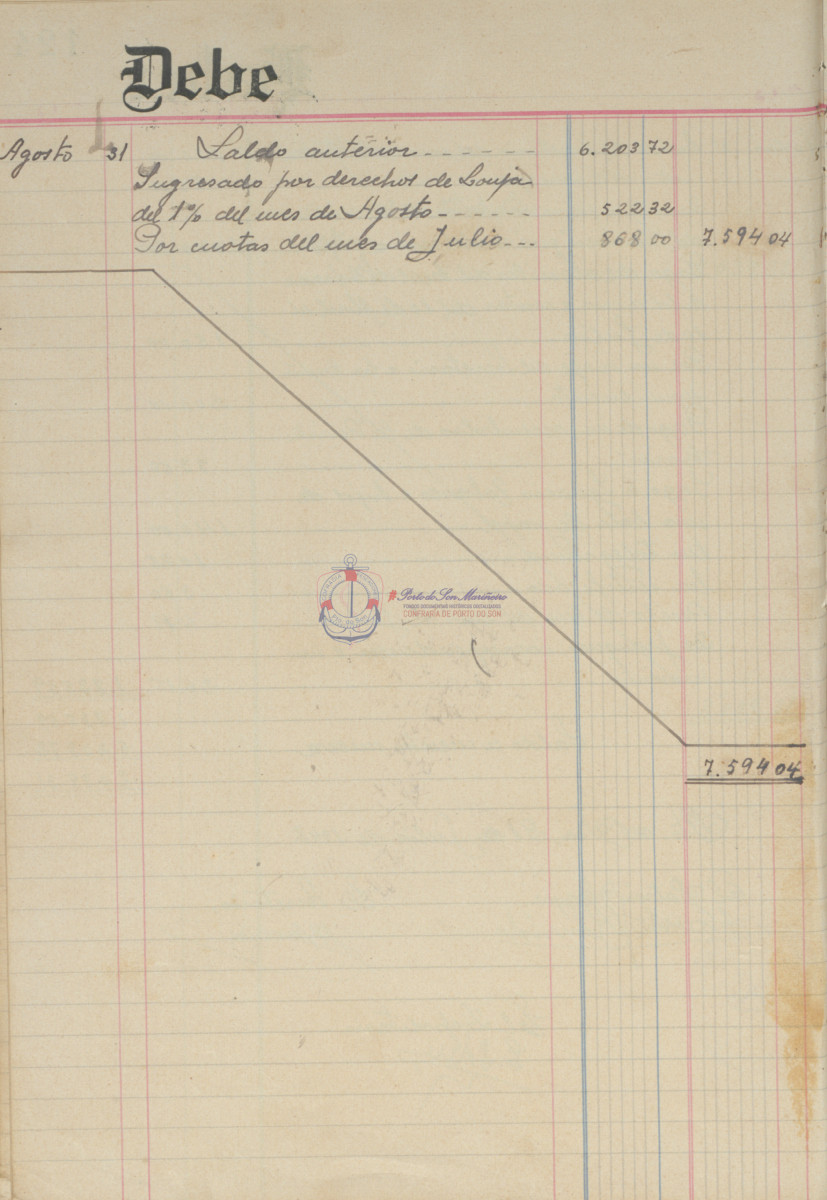 Debe
Agosto 31 Saldo anterior - - - - - - 6.203 72
Ingresado por derechos de Lonja
del 1% del mes de Agosto - - - - - - 522 32
Por cuotas del mes de Julio - - - 868 00 7.594 04
#Porto do Son Mariñeiro
FONDOS DOCUMENTAIS HISTÓRICOS DIXITALIZADOS
CONFRARÍA DE PORTO DO SON
7.594 04